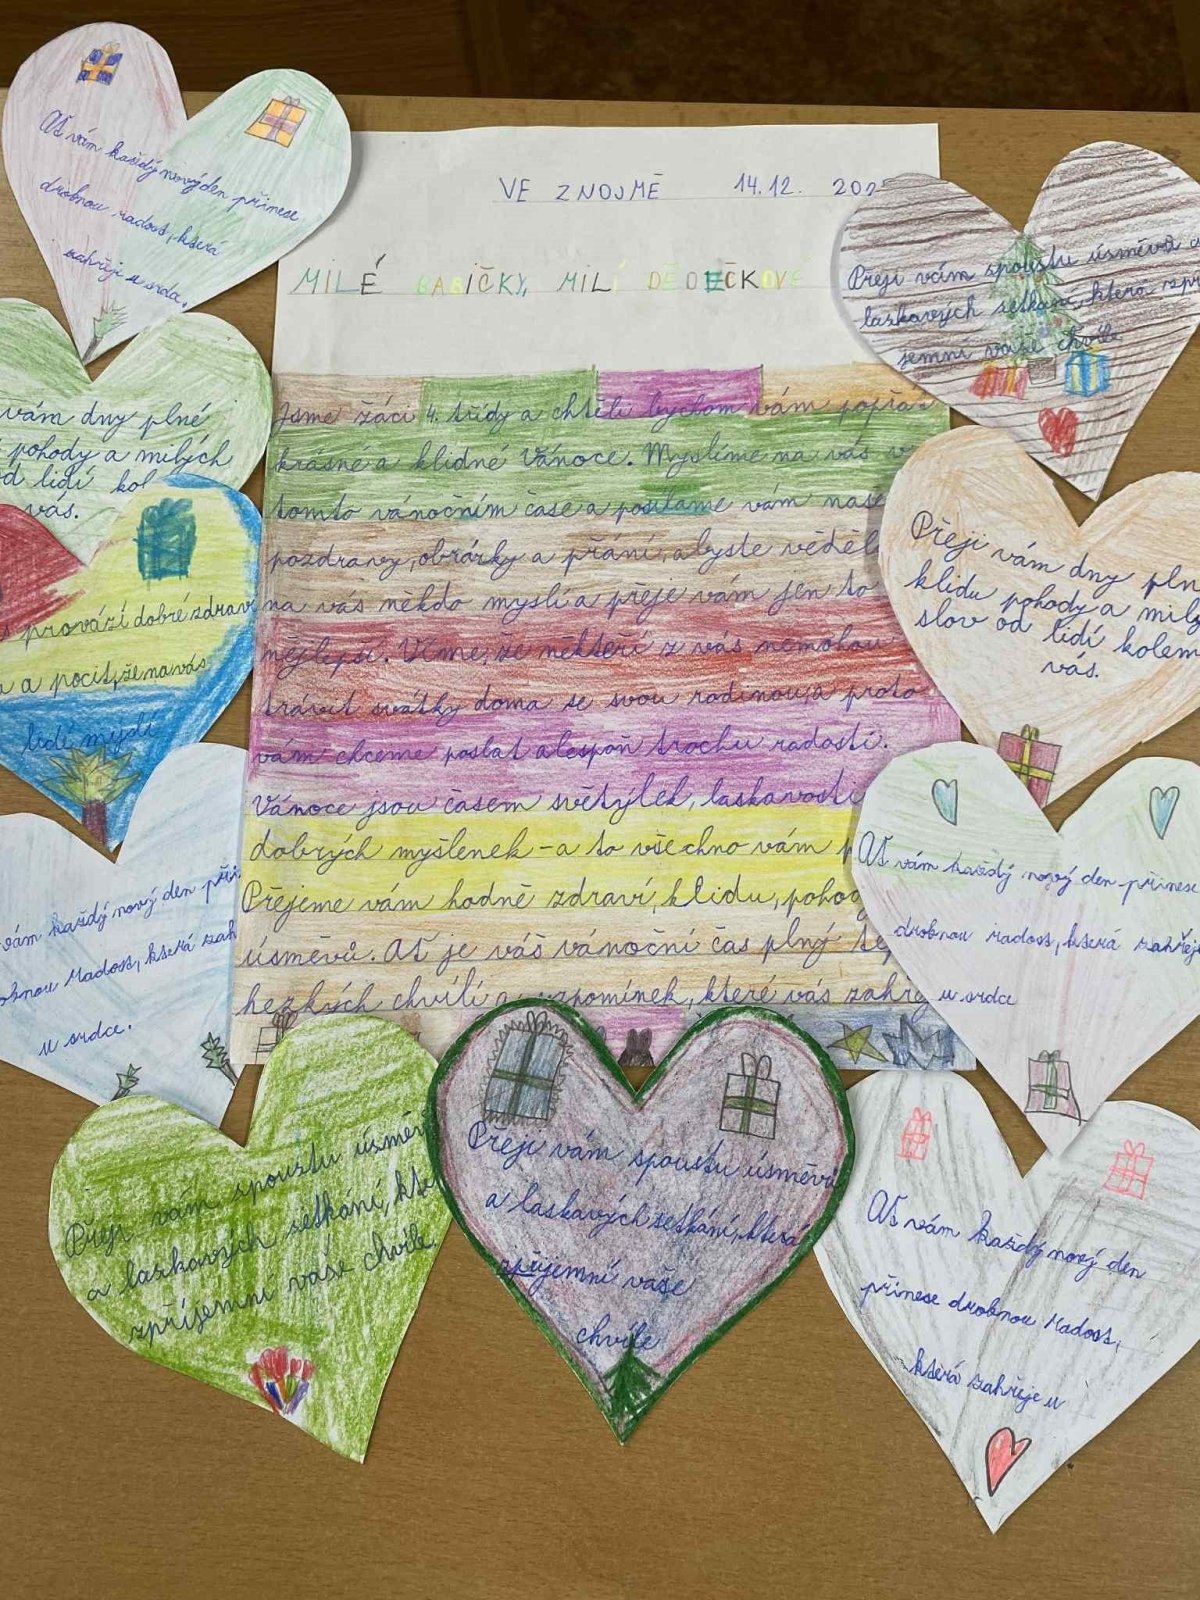 VE ZNOJMĚ 14.12. 202
MILÉ BABIČKY, MILÍ DĚDEČKOVÉ
Jsme žáci 4. třídy a chtěli bychom vám popřát
krásné a klidné Vánoce. Myslíme na vás v
tomto vánočním čase a posíláme vám naše
pozdravy, obrázky a přání, abyste věděl
na vás někdo myslí a přeje vám jen to
nejlepší. Víme, že někteří z vás nemohou
trávit svátky doma se svou rodinou, a proto
vám chceme poslat alespoň trochu radosti.
Vánoce jsou časem světýlek, laskavosti
dobrých myšlenek - a to všechno vám p
Přejeme vám hodně zdraví, klidu, pohod
úsměvů. Ať je váš vánoční čas plný
hezkých chvílí a vzpomínek, které vás zahře
Ať vám každý nový den přinese
drobnou radost, která
zahřeje u srdce.
vám dny plné
pohody a milých
od lidí kol
vás.
provází dobré zdraví
a pocit, že na vás
lidí myslí
vám každý nový den při
drobnou radost, která zah
u srdce.
Přeji vám spoustu úsměv
a laskavých setkání, kte
zpříjemní vaše chvíle
Přeji vám spoustu úsměvů
a laskavých setkání, která
zpříjemní vaše
chvíle
Přeji vám spoustu úsměvů a
laskavých setkání, která zpří
jemní vaše chvíle
Přeji vám dny pln
klidu pohody a milý
slov od lidí kolem
vás.
Ať vám každý nový den přinese
drobnou radost, která zahřeje
u srdce
Ať vám každý nový den
přinese drobnou radost,
která zahřeje u